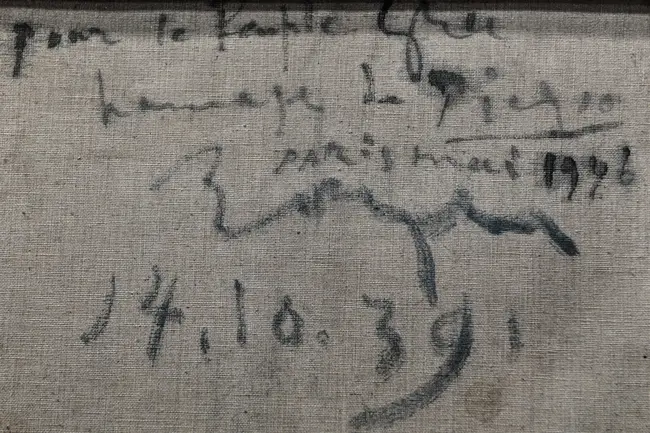 pour le Peuple Grec
hommage de Picasso
PARIS mai 1946
14.10.39.